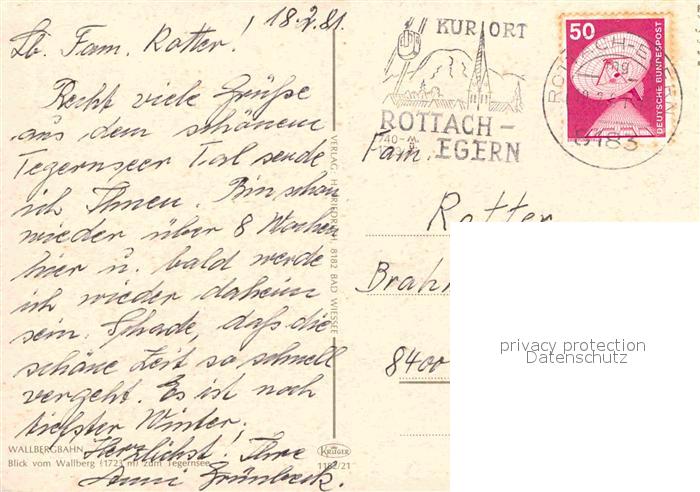 18.2.81.
Lb. Fam. Rotter!
Recht viele Grüße
aus dem schönem
Tegernseer Tal sende
ich Ihnen. Bin schon
wieder über 8 Wochen
hier u. bald werde
ich wieder daheim
sein. Schade, daß die
schöne Zeit so schnell
vergeht. Es ist noch
tiefster Winter;
Herzlichst! Ihre
Anni Grünbeck.
WALLBERGBAHN
Blick vom Wallberg (1723 m) zum Tegernsee
VERLAG: H. FRIEDRICH, 8182 BAD WIESSEE
KRÜGER
1182/21
KURORT
ROTTACH-
EGERN
740-
50
DEUTSCHE BUNDESPOST
8183
Fam.
Rotter
Brah
8400
privacy protection
Datenschutz